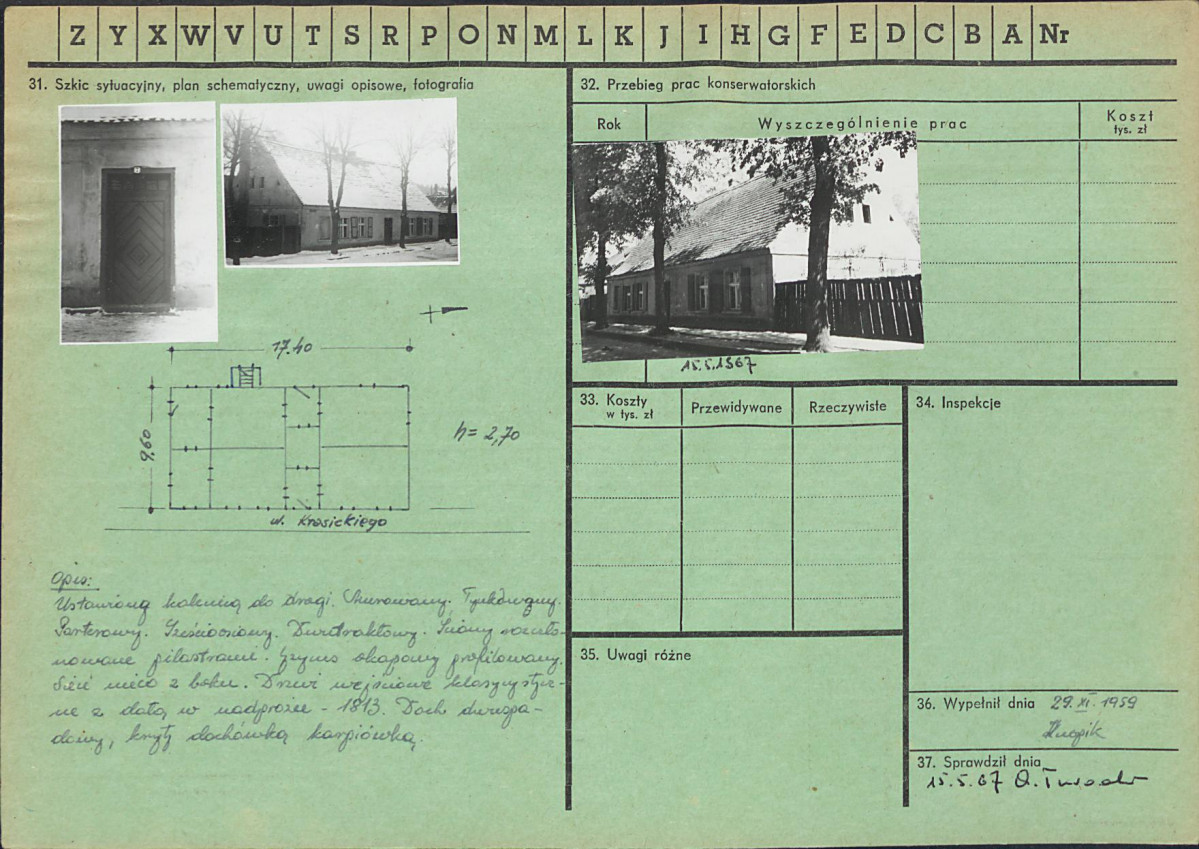 Z Y X W V U T S R P O N M L K J I H G F E D C B A Nr
31. Szkic sytuacyjny, plan schematyczny, uwagi opisowe, fotografia
17.40
9,60
h = 2,70
ul. Krasickiego
Opis:
Ustawiony kalenicą do drogi. Murowany. Tynkowany.
Parterowy. Sześcioosiowy. Dwutraktowy. Ściany rozczło-
nowane pilastrami. Gzyms okapowy profilowany.
Sień nieco z boku. Drzwi wejściowe klasycystycz-
ne z datą w nadprożu - 1813. Dach dwuspa-
dowy, kryty dachówką karpiówką.
32. Przebieg prac konserwatorskich
Rok
Wyszczególnienie prac
Koszt
tys. zł
15.5.1967
33. Koszty
w tys. zł
Przewidywane
Rzeczywiste
34. Inspekcje
35. Uwagi różne
36. Wypełnił dnia 29.XI.1959
37. Sprawdził dnia
15.5.67